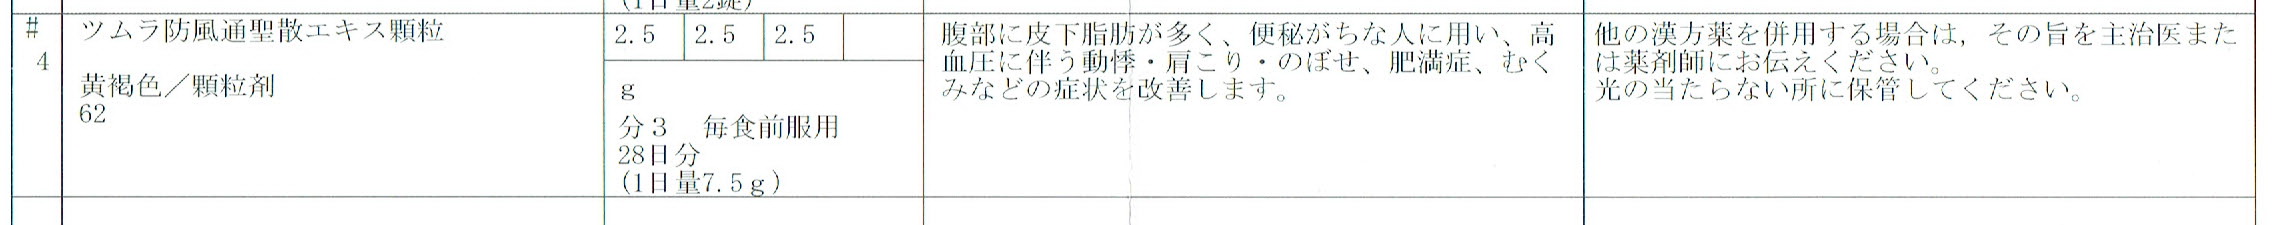 (1日量2錠)
#
4
ツムラ防風通聖散エキス顆粒
黄褐色／顆粒剤
62
2.5 2.5 2.5
g
分３　毎食前服用
28日分
(1日量7.5g)
腹部に皮下脂肪が多く、便秘がちな人に用い、高
血圧に伴う動悸・肩こり・のぼせ、肥満症、むく
みなどの症状を改善します。
他の漢方薬を併用する場合は，その旨を主治医また
は薬剤師にお伝えください。
光の当たらない所に保管してください。